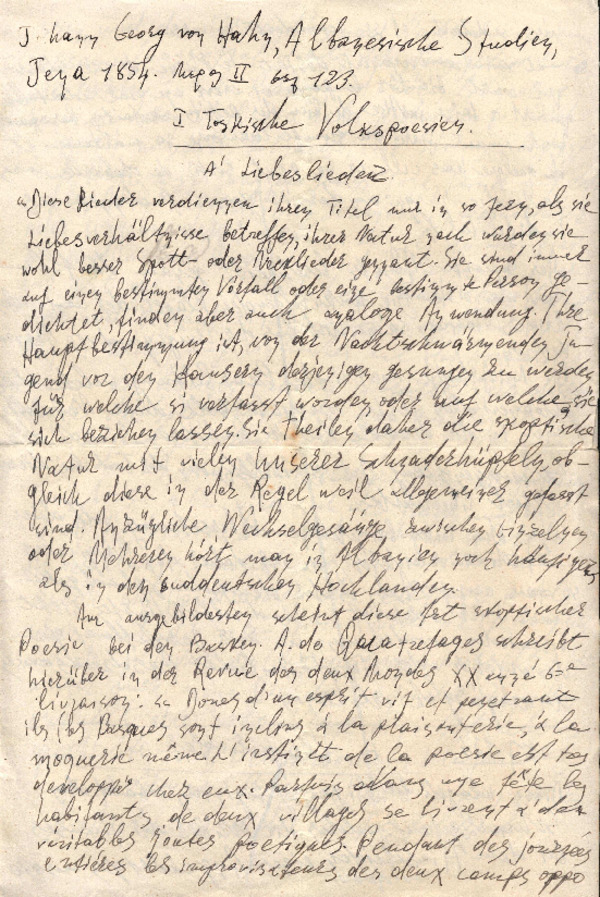 Johann Georg von Hahn, Albanesische Studien,
Jena 1854. Μερος II σελ 123.
I Toskische Volkspoesien.
A' Liebeslieder.
„Diese Lieder verdiennen ihren Titel nur in so fern, als sie
Liebesverhältnisse betreffen, ihrer Natur nach wurden sie
wohl besser Spott- oder Necklieder gennant. Sie sind immer
auf einen bestimmten Vorfall oder eine bestimmte Person ge-
dichtet, finden aber auch analoge Anwendung. Ihre
Hauptbestimmung ist, von der Nachtschwärmenden Ju-
gend vor den Hausern derjenigen gesungen zu werden,
für welche si verfasst worden, oder auf welche sie
sich beziehen lassen. Sie theilen daher die skoptische
Natur mit vielen unserer Schnaderhüpfeln, ob-
gleich diese in der Regel weil allgemeiner gefasst
sind. Anzügliche Wechselgesänge zwischen Einzelnen
oder Mehreren hört man in Albanien noch häufiger,
als in den suddeutschen Hochlanden.
Am ausgebildesten scheint diese Art skoptischer
Poesie bei den Basken. A. de Quatrefages schreibt
hierüber in der Revue des deux Mondes XX année 6me
livraison: Doués d'un esprit vif et penetrant
ils (les Basques sont inclins à la plaisanterie, à la
moquerie même. L'instinct de la poesie est tres
developpé chez eux. Parfois dans une fête les
habitants de deux villages se livrent à des
véritables joutes poetiques. Pendant des journées
entières les improvisateurs des deux camps oppo